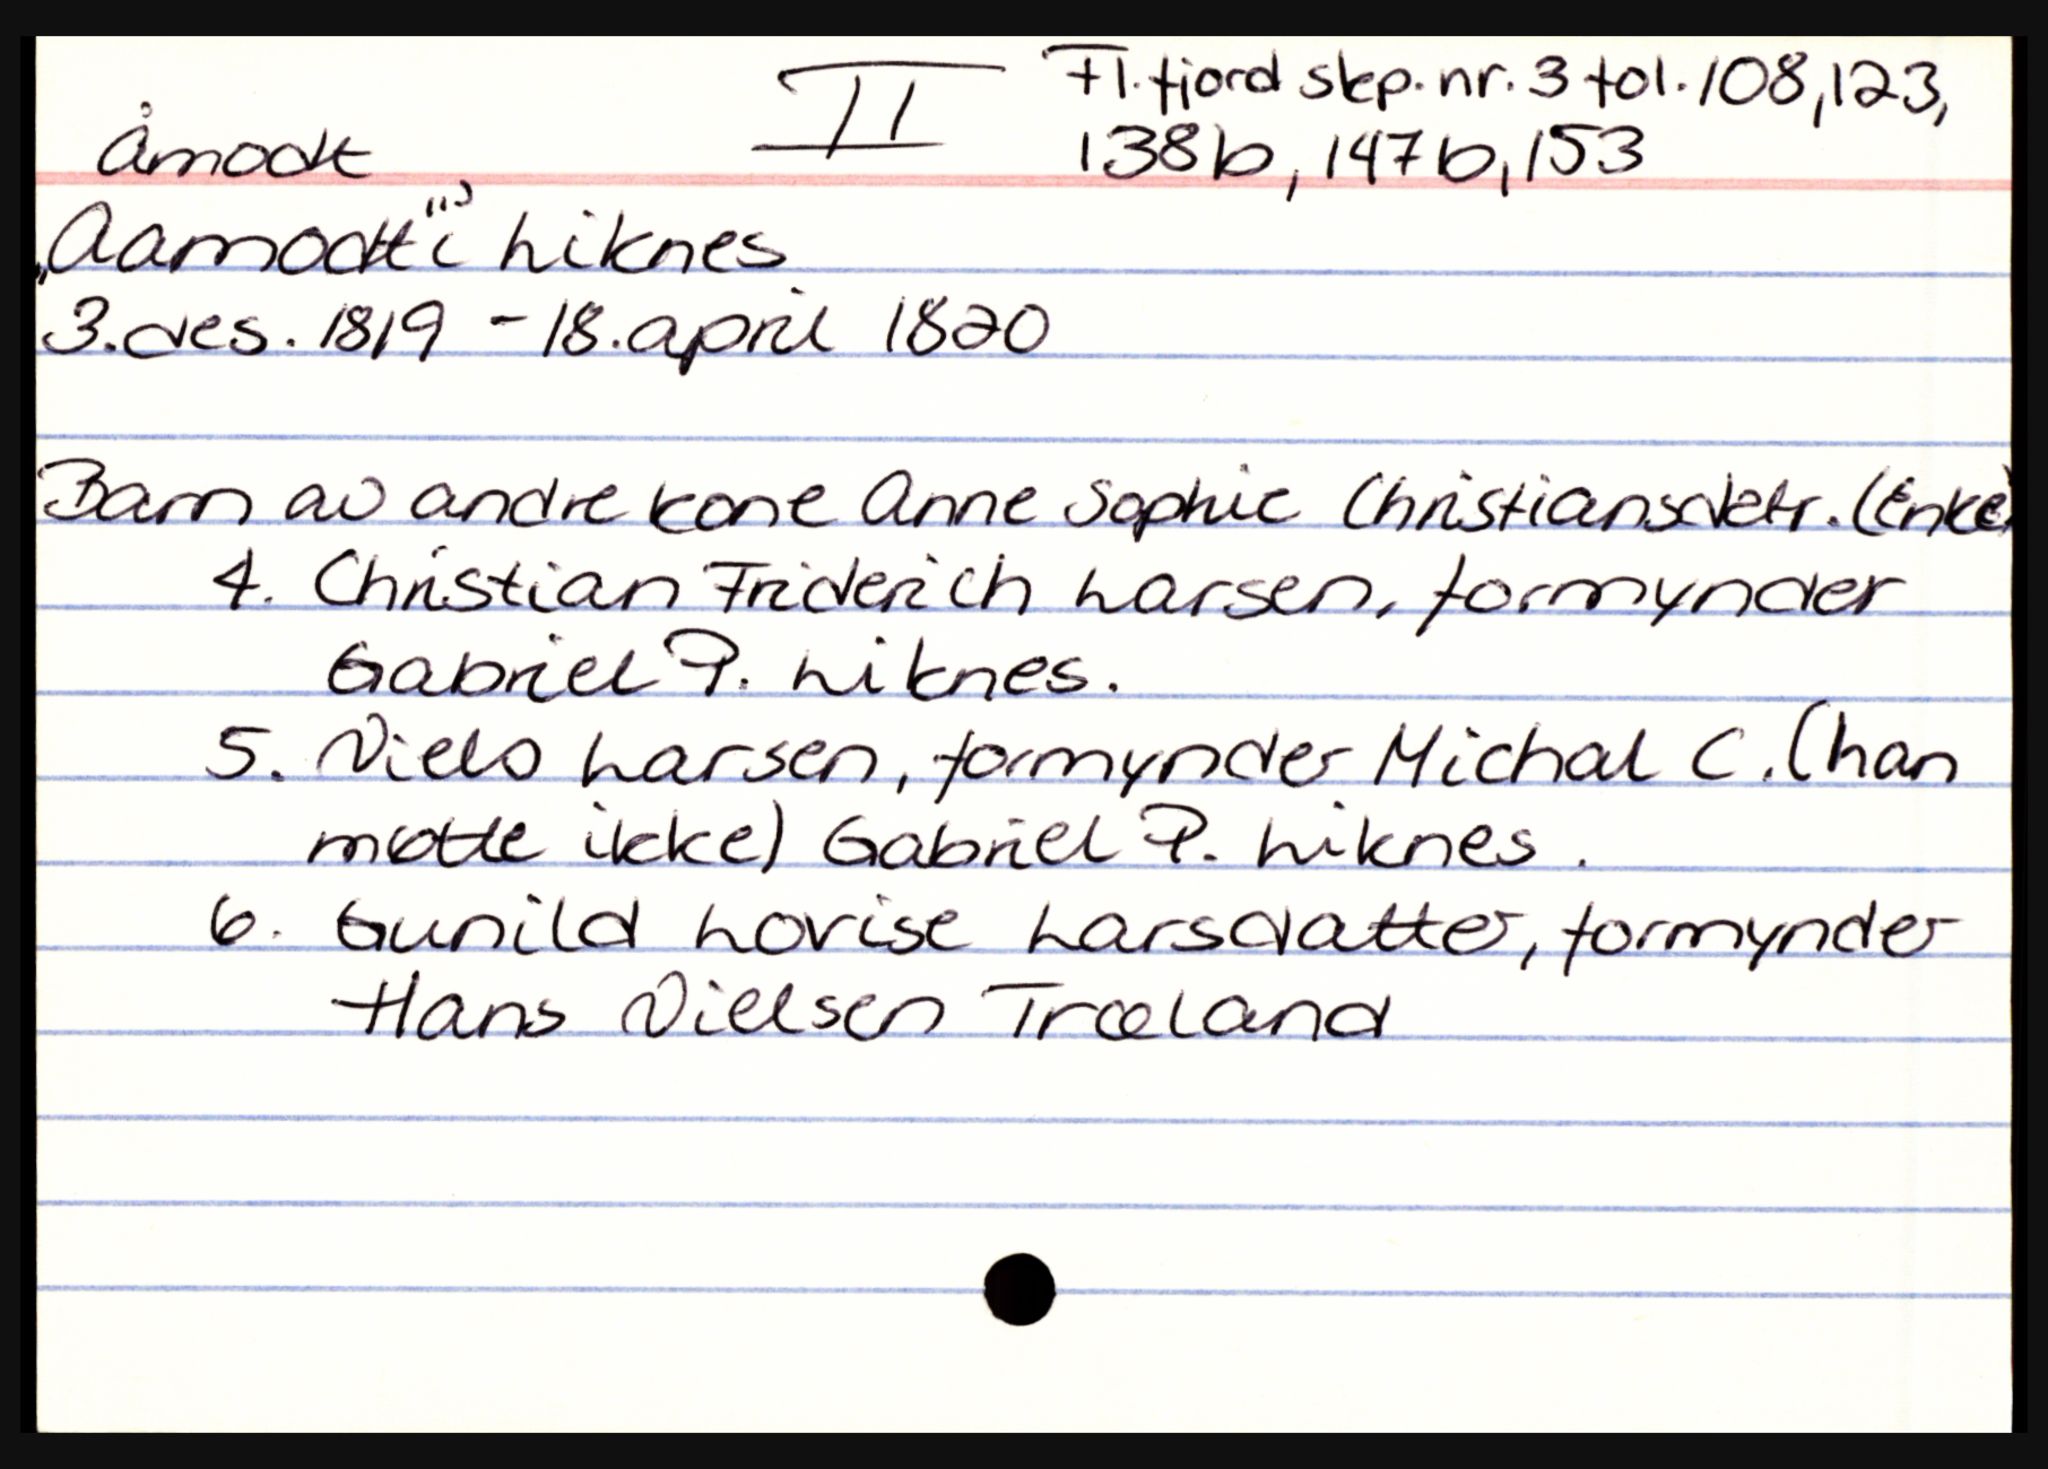 Åmodt II Fl.fjord skp. nr. 3 fol. 108, 123,
138b, 147b, 153
"Aamodt" i Liknes
3. des. 1819 - 18. april 1820
Barn av andre kone Anne Sophie Christiansdatr. (Enke)
4. Christian Friderich Larsen, formynder
Gabriel P. Liknes.
5. Niels Larsen, formynder Michal C. (han
møtte ikke) Gabriel P. Liknes.
6. Gunild Lovise Larsdatter, formynder
Hans Nielsen Træland